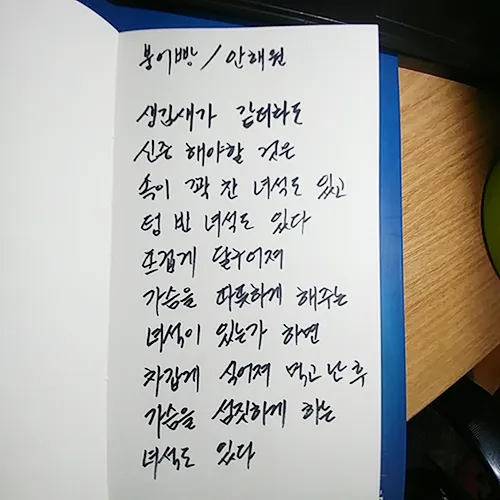 붕어빵 / 안해원
생김새가 같더라도
신중해야할 것은
속이 꽉 찬 녀석도 있고
텅 빈 녀석도 있다
뜨겁게 달구어져
가슴을 따뜻하게 해주는
녀석이 있는가 하면
차갑게 식어져 먹고 난 후
가슴을 섬짓하게 하는
녀석도 있다